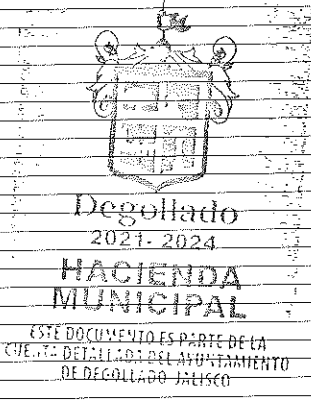 Degollado
2021-2024
HACIENDA
MUNICIPAL
ESTE DOCUMENTO ES PARTE DE LA
CUENTA DETALLADA DEL AYUNTAMIENTO
DE DEGOLLADO JALISCO